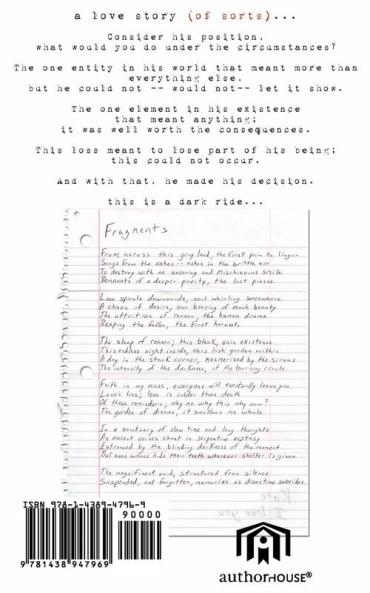 a love story (of sorts)...
Consider his position,
what would you do under the circumstances?
The one entity in his world that meant more than
everything else,
but he could not -- would not-- let it show.
The one element in his existence
that meant anything;
it was well worth the consequences.
This loss meant to lose part of his being;
this could not occur.
And with that, he made his decision.
this is a dark ride...
Fragments
From across this grey land, the first pain to linger
Songs from the ashes -- notes in the brittle air
To destroy with no unerring and Mischievous smile
Remnants of a deeper purity, the lost pieces.
Love spirals downwards, soul whirling somewhere
A chaos of desire, our bearing of much beauty
The attrition of reason, the human drama
Reaping the fallen, the First harvest.
The sleep of reason; this bleak, vain existence
This endless night inside, this lush garden within
A day in the stark corner, mesmerized by the sirens
The intensity of the darkness, of the burning circle.
Faith in my muse, everyone will eventually leave you
Love's lies; love is colder than death
Of these reminders; why me why this why now?
The garden of dreams, it swallows me whole.
In a sanctuary of slow time and long thoughts
As ancient voices chant in serpentine ecstasy
Entranced by the blinding darkness of the moment
But even wolves hide their teeth whenever shelter is given.
The magnificent void, structured from silence
Suspended, not forgotten, memories as disentime subsides.
I love you
ISBN 978-1-4389-4796-9
90000
9 781438 947969
authorHOUSE®